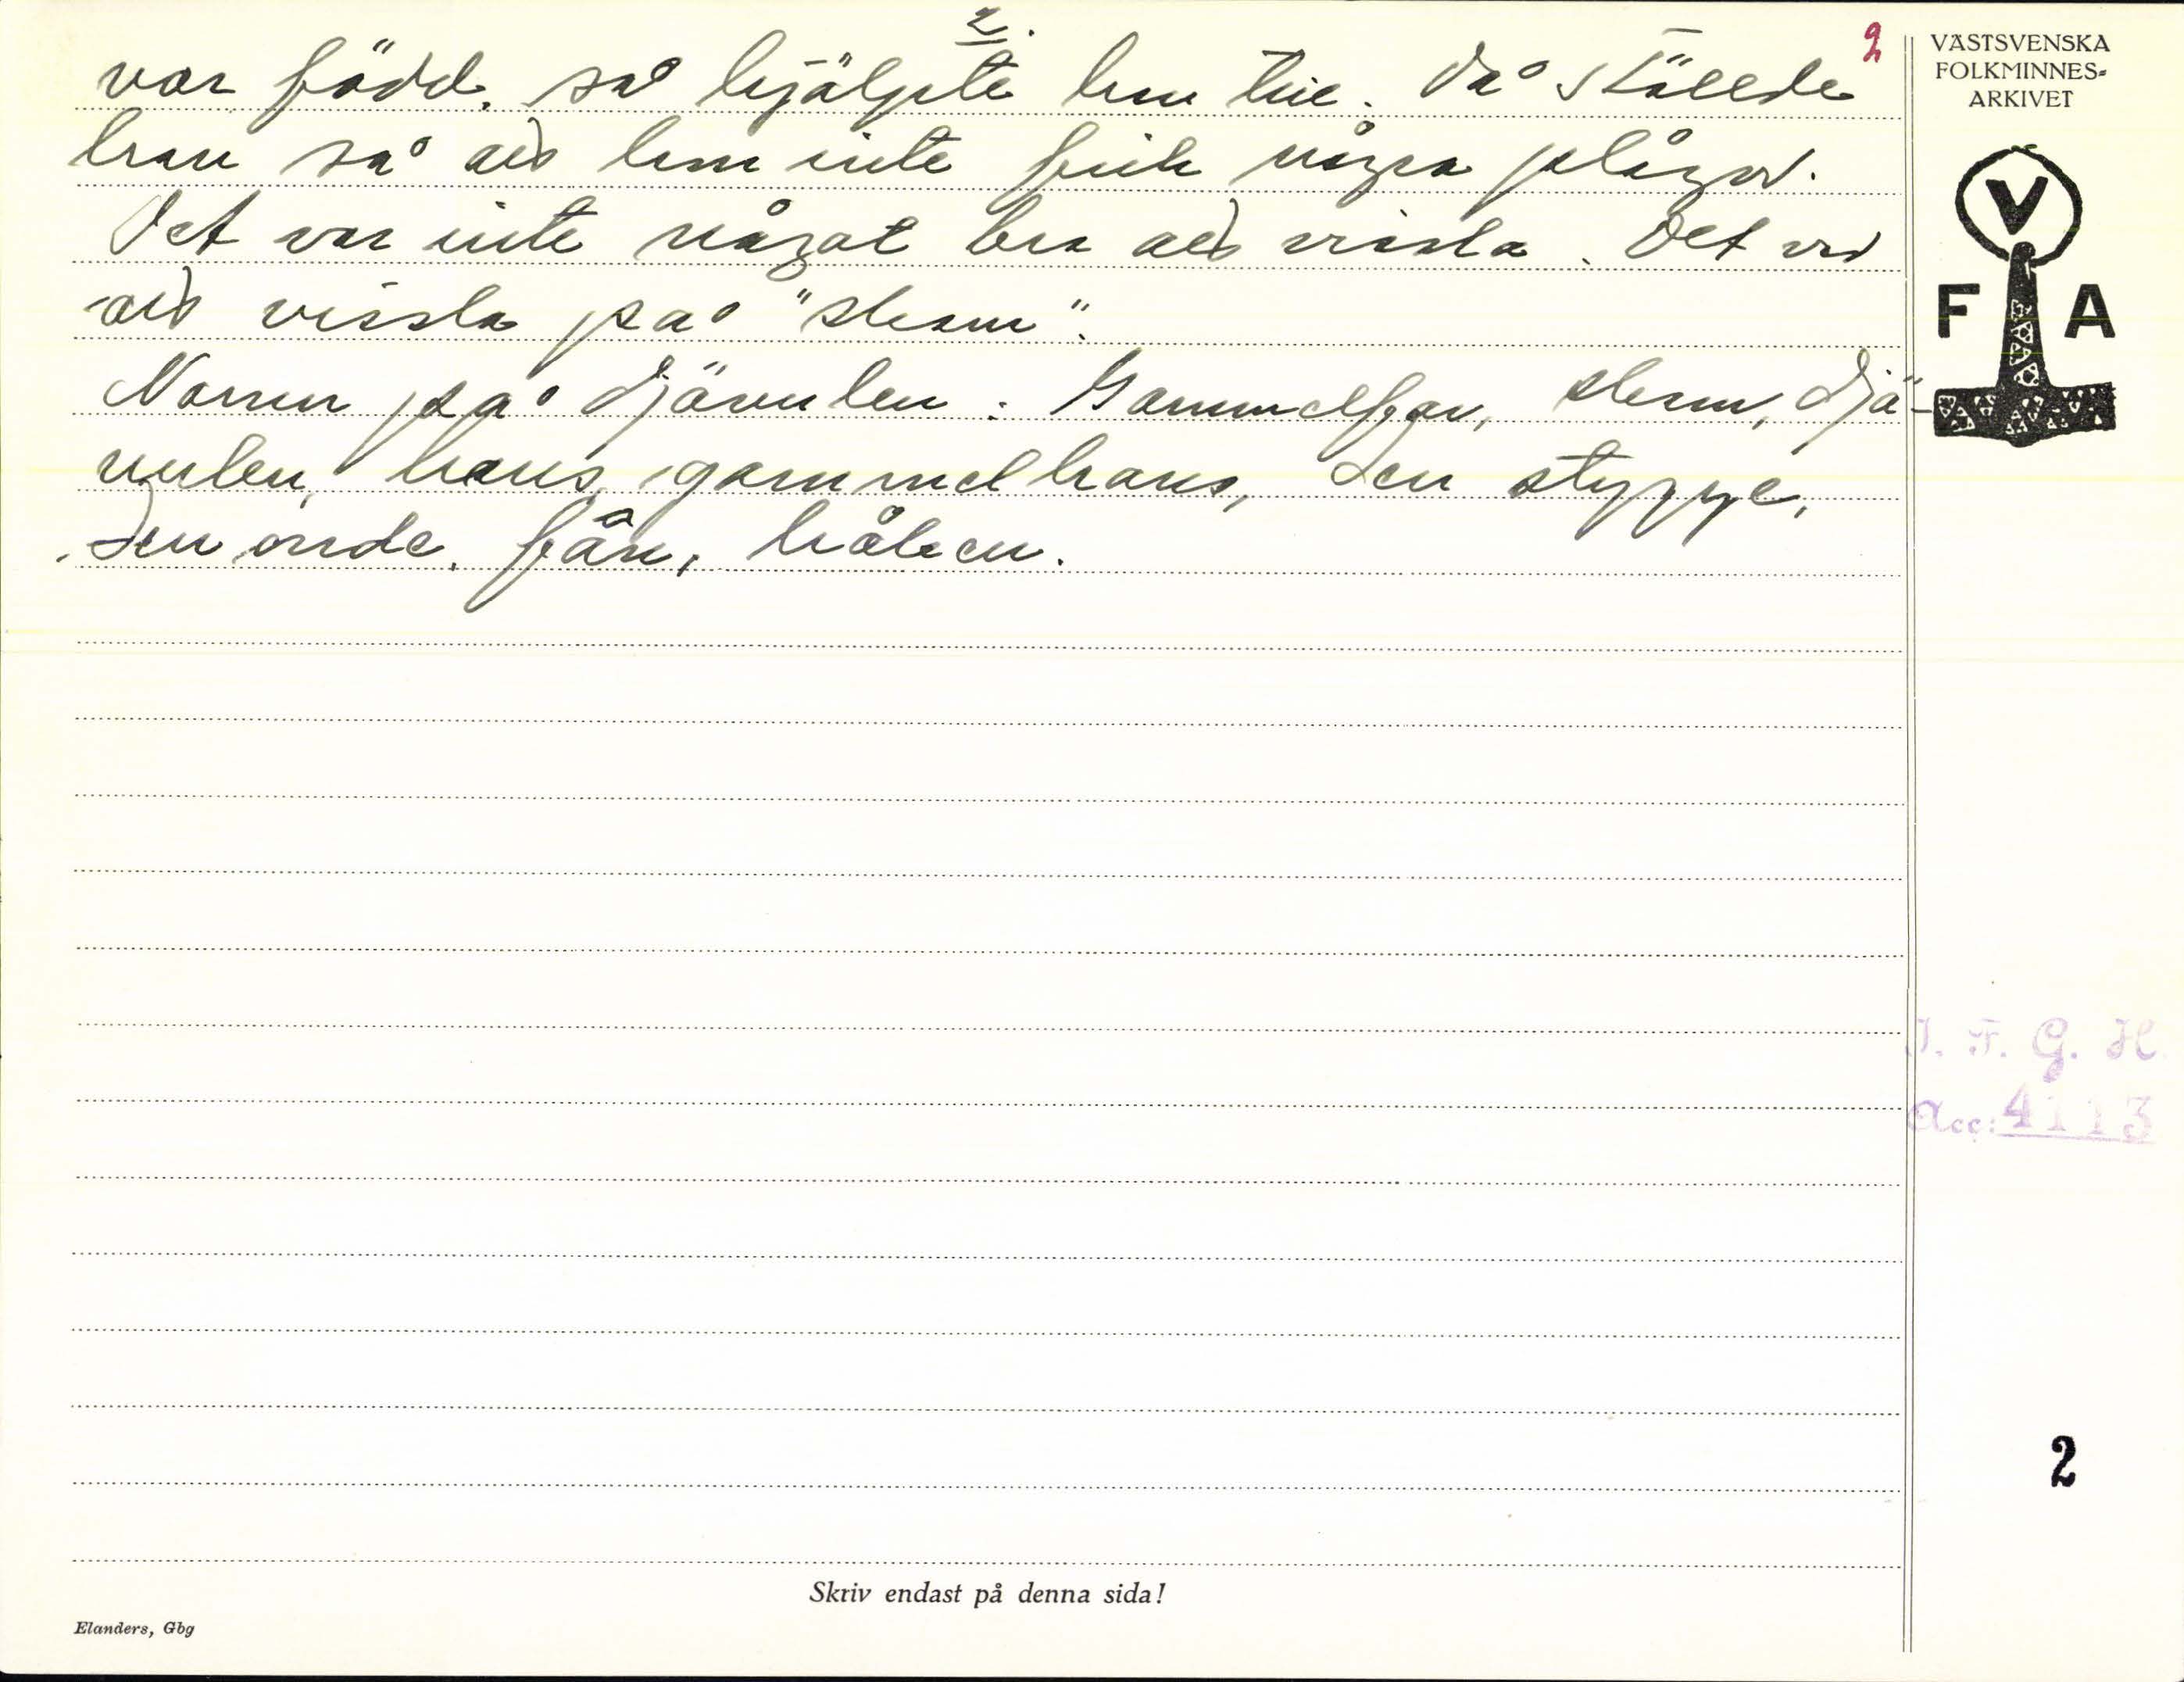 2.
2
var född, så hjälpte hon till. Då ställde
han så att hon inte fick några plågor.
Det var inte något bra att vissla. Det var
att vissla på "slemm".
Namn på djävulen: Gammelfar, slemm, djä-
vulen, hans, gammelhans, den stygge,
den onde, fân, håken.
VÄSTSVENSKA
FOLKMINNES-
ARKIVET
V
F A
I. F. G. H.
Acc: 4113
2
Skriv endast på denna sida!
Elanders, Gbg